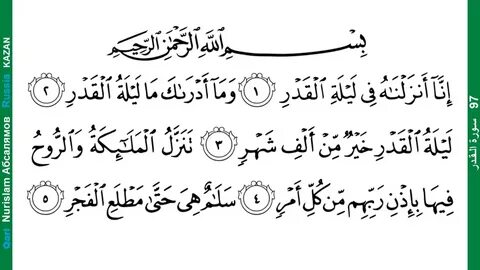 بِسْمِ اللَّهِ الرَّحْمَٰنِ الرَّحِيمِ
إِنَّا أَنزَلْنَاهُ فِي لَيْلَةِ الْقَدْرِ ١ وَمَا أَدْرَاكَ مَا لَيْلَةُ الْقَدْرِ ٢
لَيْلَةُ الْقَدْرِ خَيْرٌ مِّنْ أَلْفِ شَهْرٍ ٣ تَنَزَّلُ الْمَلَائِكَةُ وَالرُّوحُ
فِيهَا بِإِذْنِ رَبِّهِم مِّن كُلِّ أَمْرٍ ٤ سَلَامٌ هِيَ حَتَّىٰ مَطْلَعِ الْفَجْرِ ٥
Qari Nurislam Абсалямов Russia KAZAN
97 سورة القدر